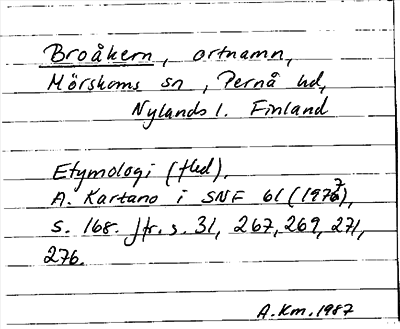 Broåkern, ortnamn,
Mörskoms sn, Pernå hd,
Nylands l. Finland
Etymologi (fled).
A. Kartano i SNF 61 (1977),
s. 168. Jfr. s. 31, 267, 269, 271,
276.
A.Km. 1987